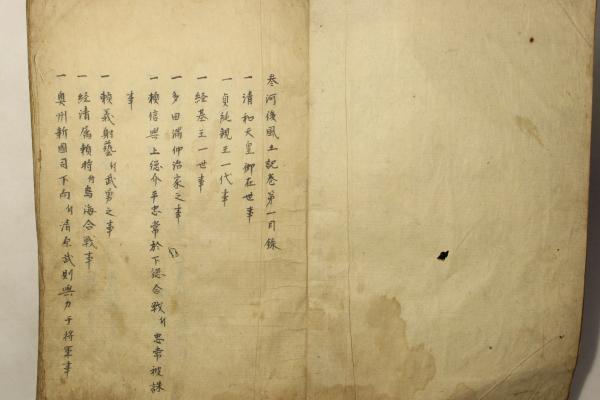 参河後風土記巻第一目録
一 清和天皇御在世事
一 貞純親王一代事
一 経基王一世事
一 多田満仲治家之事
一 頼信與上総介平忠常於下総合戦幷忠常被誅
事
一 頼義射藝幷武勇之事
一 経清属頼時幷鳥海合戦事
一 奥州新國司下向幷清原武則與力于将軍事